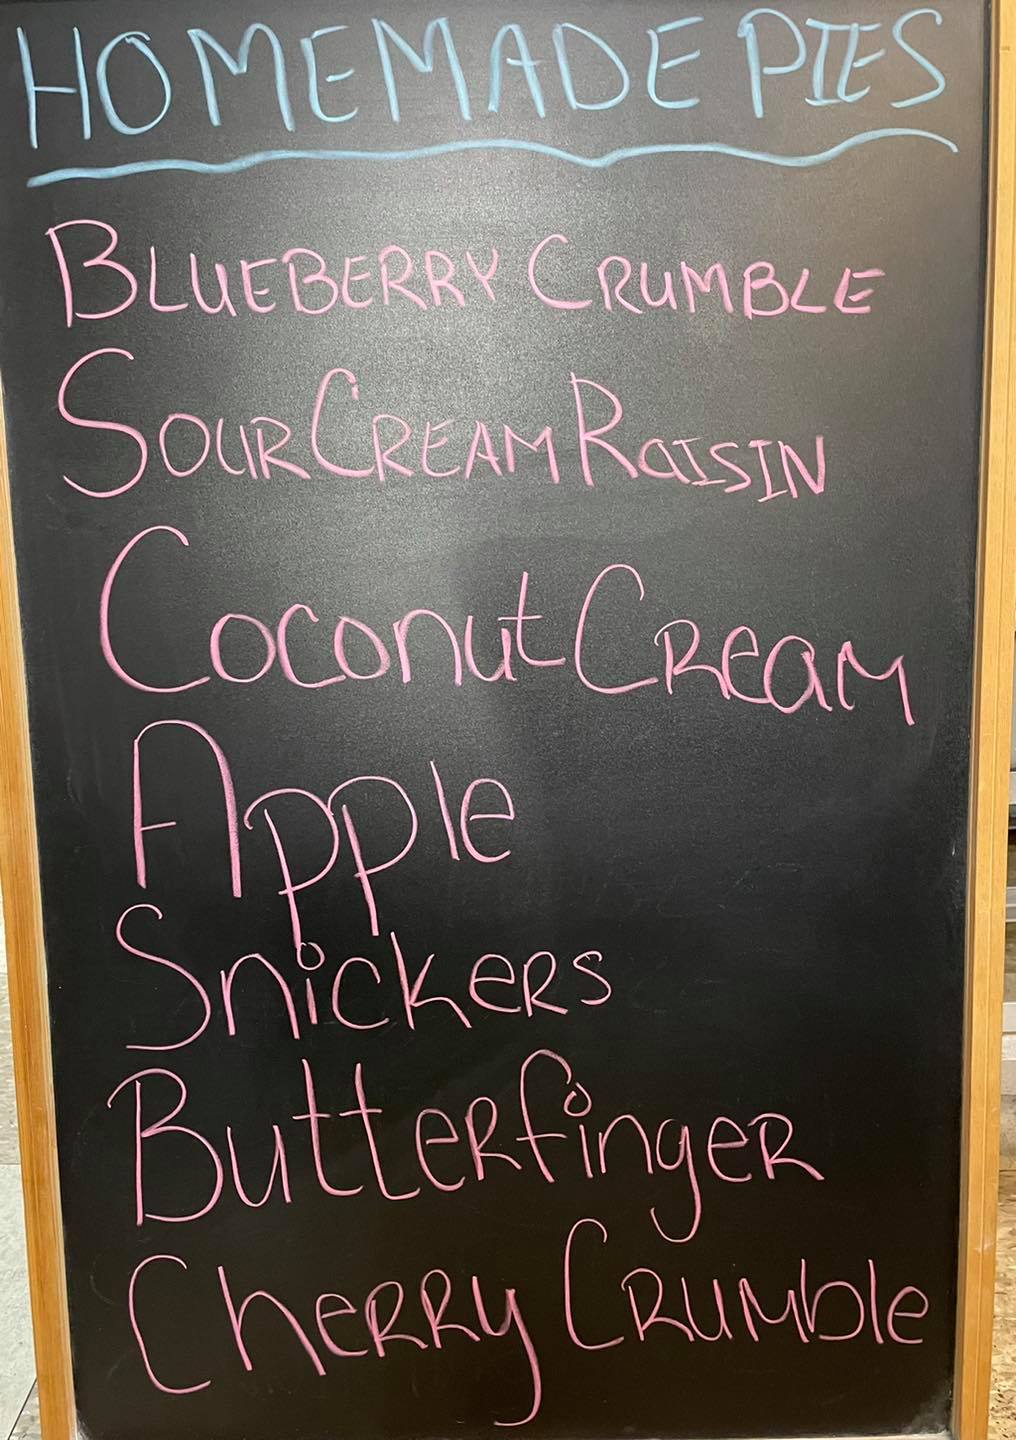 HOMEMADE PIES
BLUEBERRY CRUMBLE
SOUR CREAM RaISIN
Coconut CReaM
Apple
SnickeRs
ButteRfingeR
CheRRy CRUMble